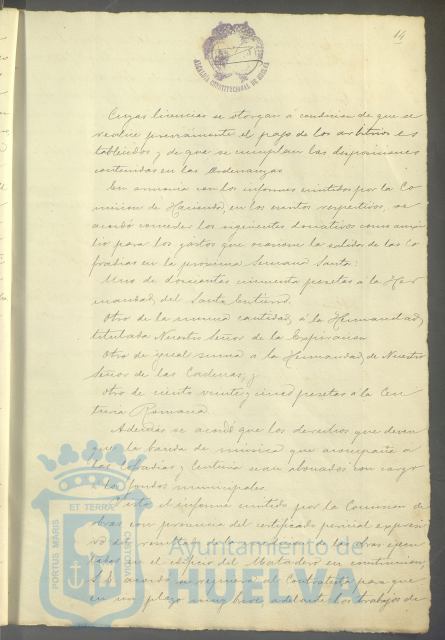 14
ALCALDIA CONSTITUCIONAL DE HUELVA
Cuyas licencias se otorgan á condicion de que se
realice previamente el pago de los arbitrios es
tablecidos y de que se cumplan las disposiciones
contenidas en las Ordenanzas
En armonia con los informes emitidos por la Co
mision de Hacienda, en los escritos respectivos, se
acordó conceder los siguientes donativos como auxi
lio para los gastos que ocasione la salida de las Co
fradias en la proxima Semana Santa:
Uno de doscientas cincuenta pesetas á la Her
mandad del Santo Entierro.
Otro de la misma cantidad, á la Hermandad,
titulada Nuestro Señor de la Espiranza
Otro de igual suma á la Hermandad, de Nuestro
Señor de las Cadenas; y
Otro de ciento veinte y cinco pesetas á la Cen
turia Romana
Ademas se acordó que los derechos que deven
gue la banda de música que acompañe a
las Cofradias y Centuria sean abonados con cargo
a los fondos municipales.
Visto el informe emitido por la Comision de
obras con presencia del certificado pericial expresi
vo del resultado de la medicion de las obras ejecu
tadas en el edificio del Matadero en construccion,
S. E. acordó se requiera al Contratista para que
en un plazo muy breve adelante los trabajos de
PORTUS MARIS ET TERRAE CUSTODIA
Ayuntamiento de
HUELVA